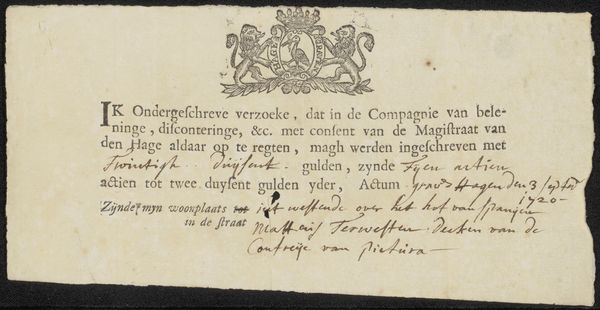 IK Ondergeſchreve verzoeke, dat in de Compagnie van bele-
ninge, diſconteringe, &c. met conſent van de Magiſtraat van
den Hage aldaar op te regten, magh werden ingeſchreven met
Twintigh duijsent gulden, zynde Tyen actien
actien tot twee duyſent gulden yder, Actum Hagen den 3
1720
Zijnde myn woonplaats tot int westende over het hof van Spangien
in de ſtraat Mattheus Terwesten Deeken van de
van pictura